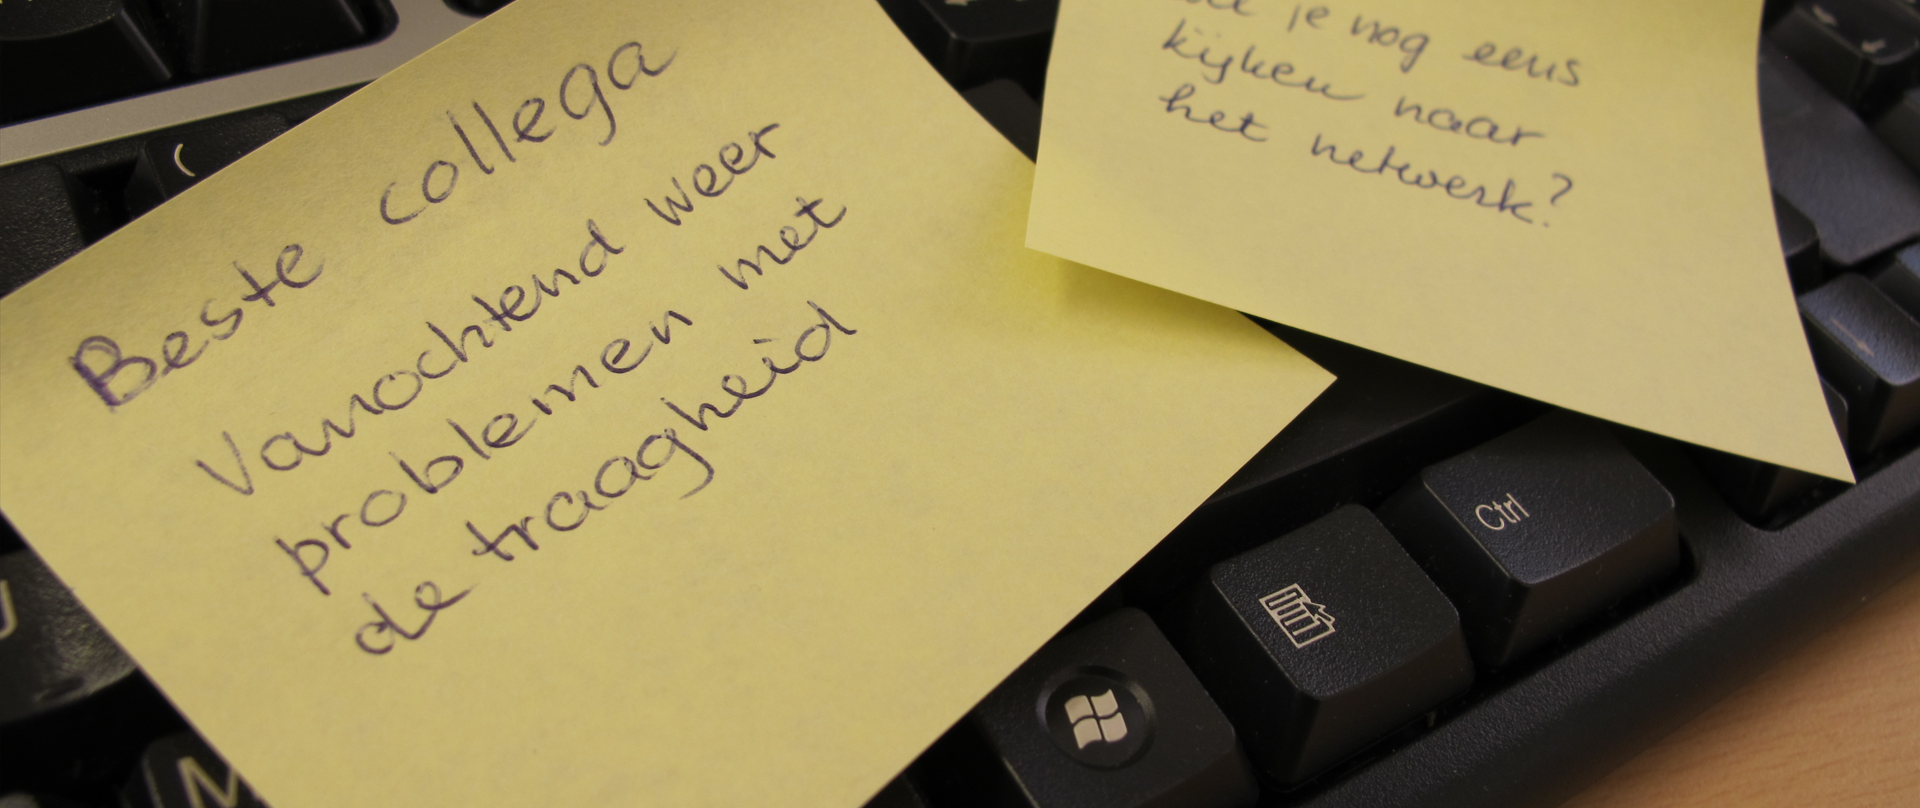 Beste collega
Vanochtend weer
problemen met
de traagheid
je nog eens
kijken naar
het netwerk?
Ctrl
M
(